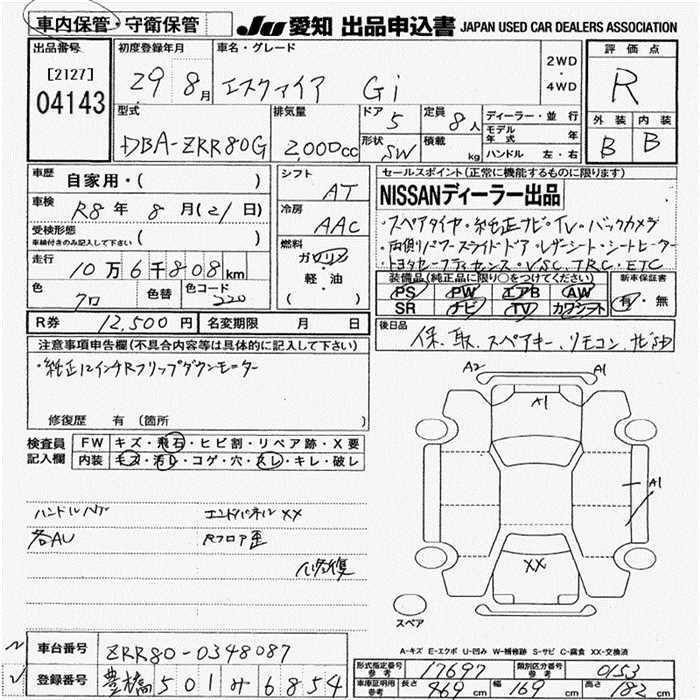 車内保管・守衛保管
JU 愛知 出品申込書 JAPAN USED CAR DEALERS ASSOCIATION
出品番号
[2127]
04143
初度登録年月
29 8月
車名・グレード
エスクァイア Gi
2WD
・
4WD
評価点
R
外装 内装
B B
型式
DBA-ZRR80G
排気量
2,000cc
ドア 5
形状 SW
定員 8人
積載 kg
ディーラー・並行
モデル年式 年
ハンドル 左・右
車歴
自家用・( )
車検
R8年 8月(21日)
受検形態
車検付きのみ記入して下さい ( )
走行
10万6千808km
色 クロ
色替
色コード 220
シフト
AT
冷房
AAC
燃料
ガソリン
軽・油
( )
セールスポイント(正常に機能するものに限ります)
NISSANディーラー出品
・スペアタイヤ・純正ナビ・TV・バックカメラ
・両側リアパワースライドドア・レザーシート・シートヒーター
・トヨタセーフティセンス・VSC・TRC・ETC
装備品(純正品に限り○をつけてください)
PS PW エアB AW
SR ナビ TV カワシート
新車保証書
有・無
R券 12,500円
名変期限 月 日
後日品
保、取、スペアキー、リモコン、ナビ
注意事項申告欄(不具合内容等は具体的に記入して下さい)
・純正12インチRフリップダウンモニター
修復歴 有(箇所 )
検査員記入欄
FW キズ・飛石・ヒビ割・リペア跡・X要
内装 モヌ・汚レ・コゲ・穴・スレ・キレ・破レ
ハンドルハゲ エンドパネルXX
各AU Rフロア歪
修復
A2 A1
A1
A1
XX
スペア
A-キズ E-エクボ U-凹み W-補修跡 S-サビ C-腐食 XX-交換済
車台番号 ZRR80-0348087
登録番号 豊橋501み6854
形式指定番号 参考 17697
類別区分番号 参考 0153
車庫証明用 参考 長さ 469cm 幅 169cm 高さ 182cm